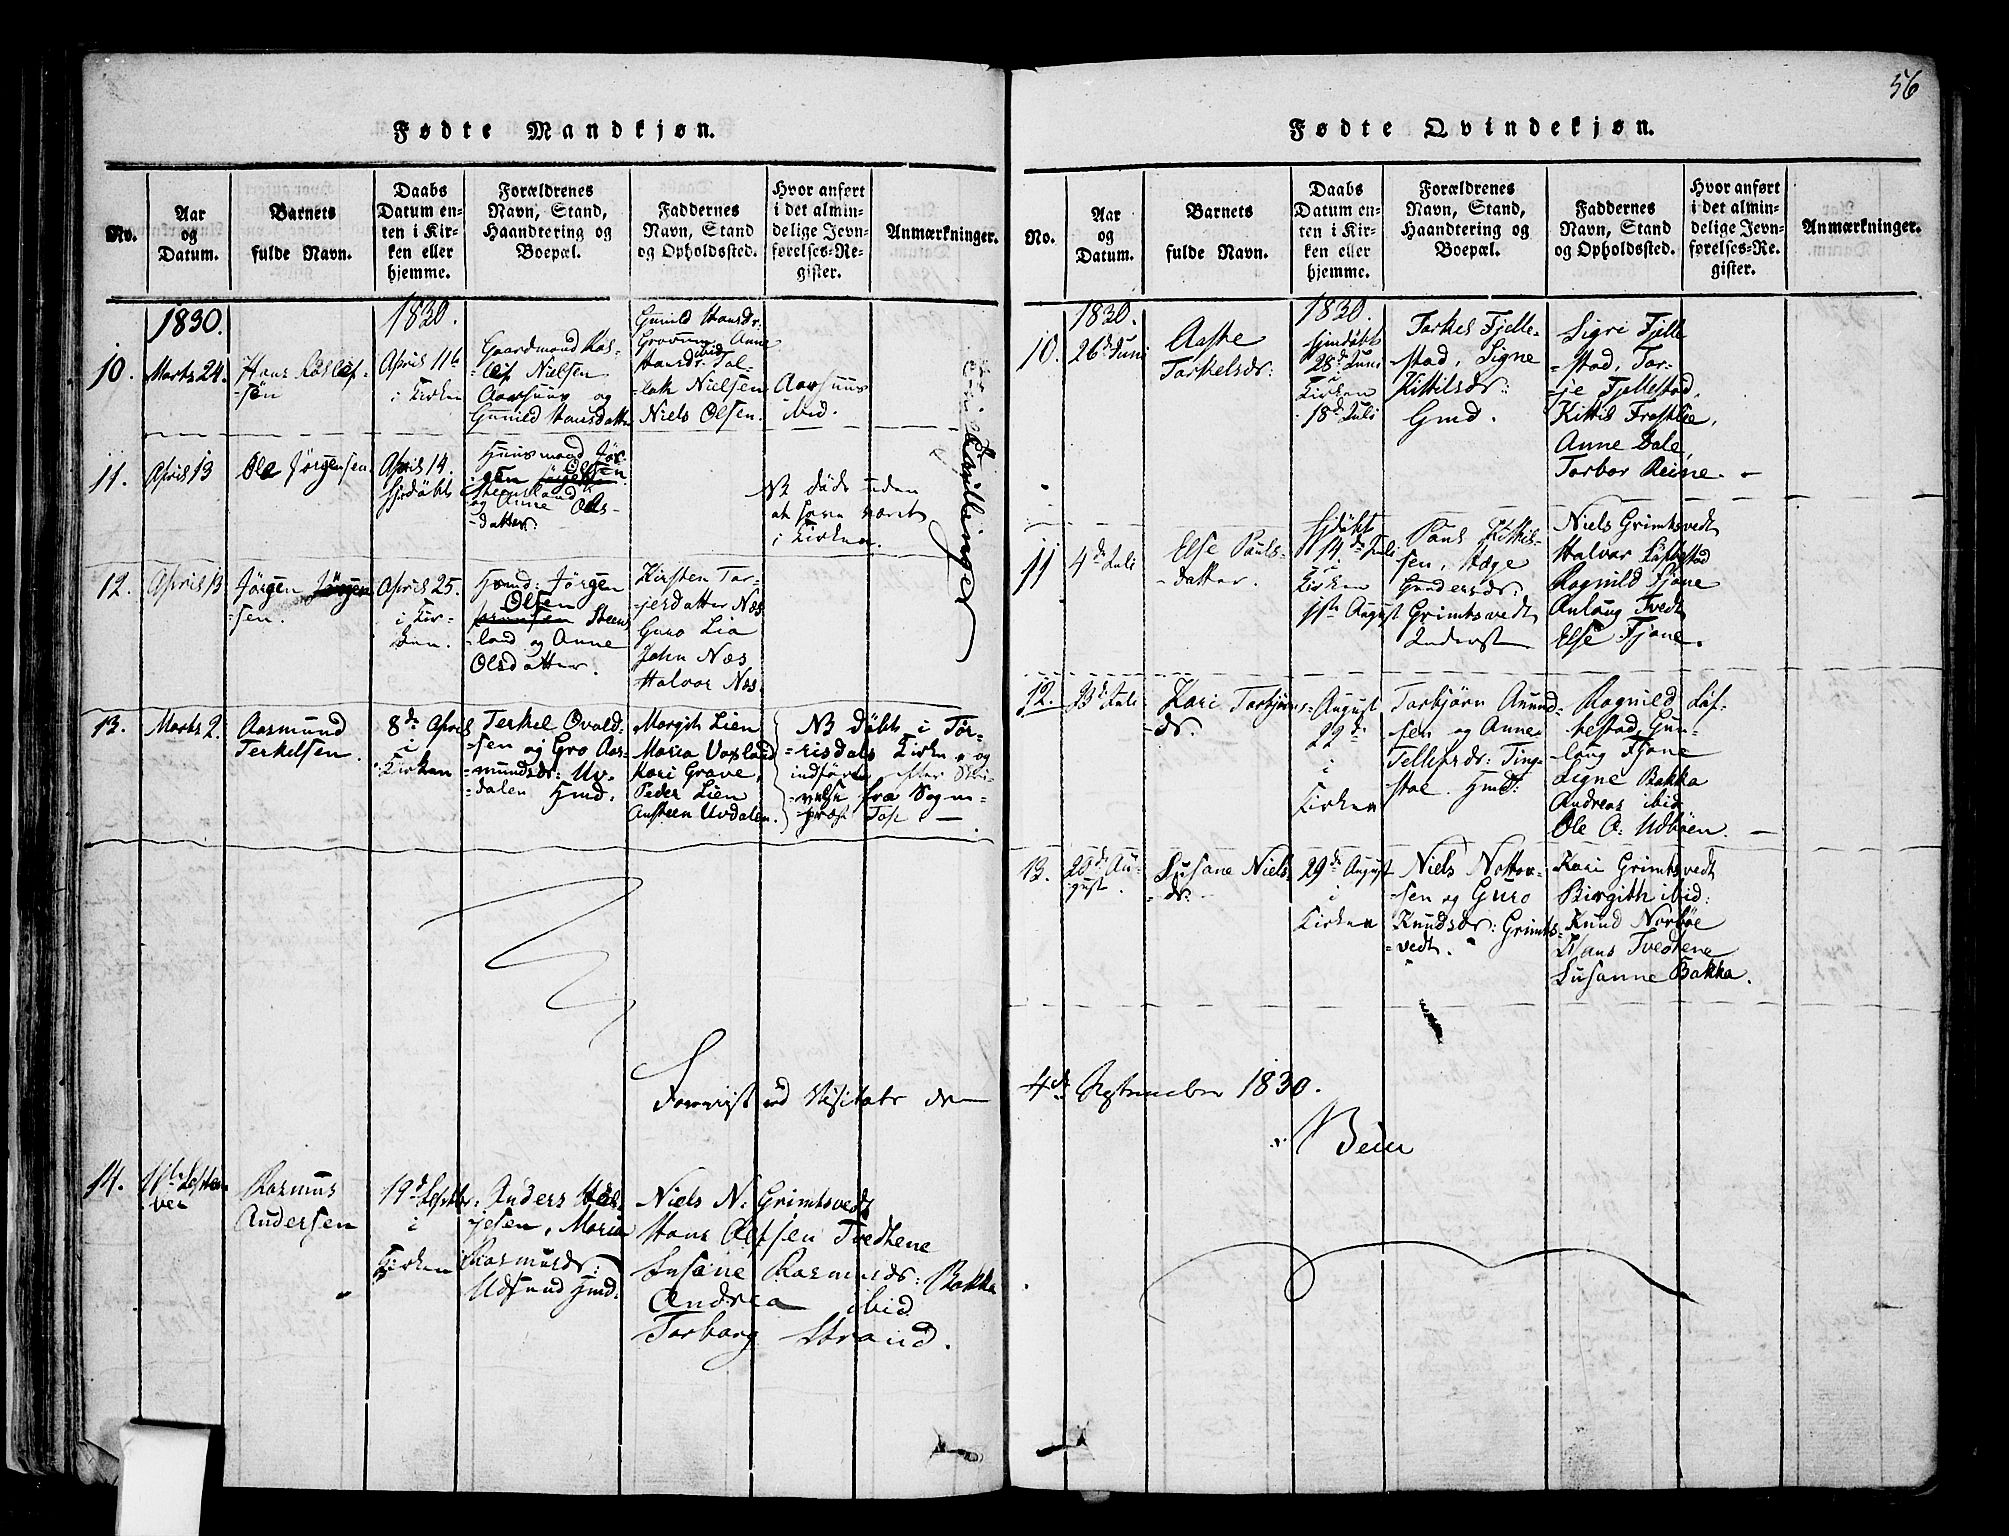 56
Fødte Mandkjøn.
No.
Aar
og
Datum.
Barnets
fulde Navn.
Daabs
Datum en-
ten i Kir-
ken eller
hjemme.
Forældrenes
Navn, Stand,
Haandtering og
Boepæl.
Faddernes
Navn, Stand
og Opholdssted.
Hvor anført
i det almin-
delige Jevn-
førelses-Re-
gister.
Anmærkninger.
1830.
1830.
10.
Marts 24.
Hans
-sön
April 11te
i Kirken
Gaardmand
Nielsen
Aarhuus og
Gunild Hansdatter
Gunild Hansdr:
Anne
Hansdr: ibid
-lak Nielsen
Niels Olsen.
Aarhuus
ibid.
11.
April 13
Ole Jørgensen
April 14.
hjdöbt
Huusmand Jör-
gen Olsen
Steensland
og Anne Ols-
datter.
NB döde uden
at have været
i Kirken.
Tvillinger
12.
April 13
Jörgen Jörgen
sen.
April 25.
i Kir-
ken.
Hmd: Jørgen
Olsen
Steens
land og Anne
Olsdatter.
Kirsten Tor-
jersdatter Næs
Guro Lia
John Næs,
Halvor Næs.
13.
Marts 2.
Aasmund
Terkelsen.
8de April
i
Kirken
Terkel Ovald-
-sen og Gro Aas-
mundsdr: Uv-
dalen Hmd:
Margit Lien
Maria Voxland
Kari Grave,
Peder Lien
Ansteen Uvdalen.
NB Döbt i Tör-
-risdals Kirke og
indført efter Ski-
-velse fra Sogne-
præst
14.
11te Septem
ber
Rasmus
Andersen
19de Septbr:
i
Kirken
Anders
jesen, Maria
Rasmusdr:
Udsund Hmd:
Niels N: Grimtsvedt
Hans Olsen Tvedtene
Susane Rasmusdr: Bakka
Andrea ibid
Torborg Strand.
Foreviist ved Visitats den
Fødte Qvindekjøn.
No.
Aar
og
Datum.
Barnets
fulde Navn.
Daabs
Datum en-
ten i Kir-
ken eller
hjemme.
Forældrenes
Navn, Stand,
Haandtering og
Boepæl.
Faddernes
Navn, Stand
og Opholdssted.
Hvor anført
i det almin-
delige Jevn-
førelses-Re-
gister.
Anmærkninger.
1830.
1830.
10.
26de Juni
Aaste
Torkelsdr:
hjemdöbt
28de Juni
i
Kirken
18de Juli
Torkel Fjelle-
stad, Signe
Kittilsdr:
Gmd.
Sigri Fjelle
-stad, Tor-
-je Fjellestad,
Kittil
Anne Dale,
Torbor Reine.
11
4de Juli
Else Pouls-
-datter.
hjdöbt
14de Juli
i
Kirken
1ste August
Poul Kittil-
sen, Aage
Gundersdr:
Grimtsvedt
Inderst
Niels Grimtsvedt
Halvor Löftestad
Ragnild Fjone
Anlaug Tvedt
Else Fjone.
12.
23de Juli
Kari Torbjörns-
-dr.
August
22de
i
Kirken
Torbjørn Anund-
sen og Anne
Tellefsdr: Ting-
stoe. Hmd:
Ragnild Löf-
testad, Gun-
-laug Fjone
Signe Bakka
Andreas ibid
Ole A: Udböen.
13.
20de Au-
gust.
Susane Niels-
-dr:
29de August
i
Kirken
Niels Nottov-
sen og Guro
Knudsdr: Grimts-
-vedt.
Kari Grimtsvedt
Birgith ibid:
Knud Norböe
Hans Tvedtene
Susanne Bakka.
4de September 1830.